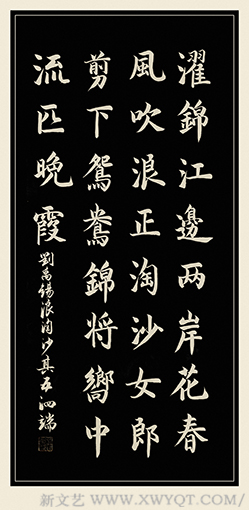 濯錦江邊两岸花春
風吹浪正淘沙女郎
剪下鴛鴦錦将嚮中
流匹晚霞
劉禹錫浪淘沙其五泗端
新文艺 WWW.XWYQT.COM